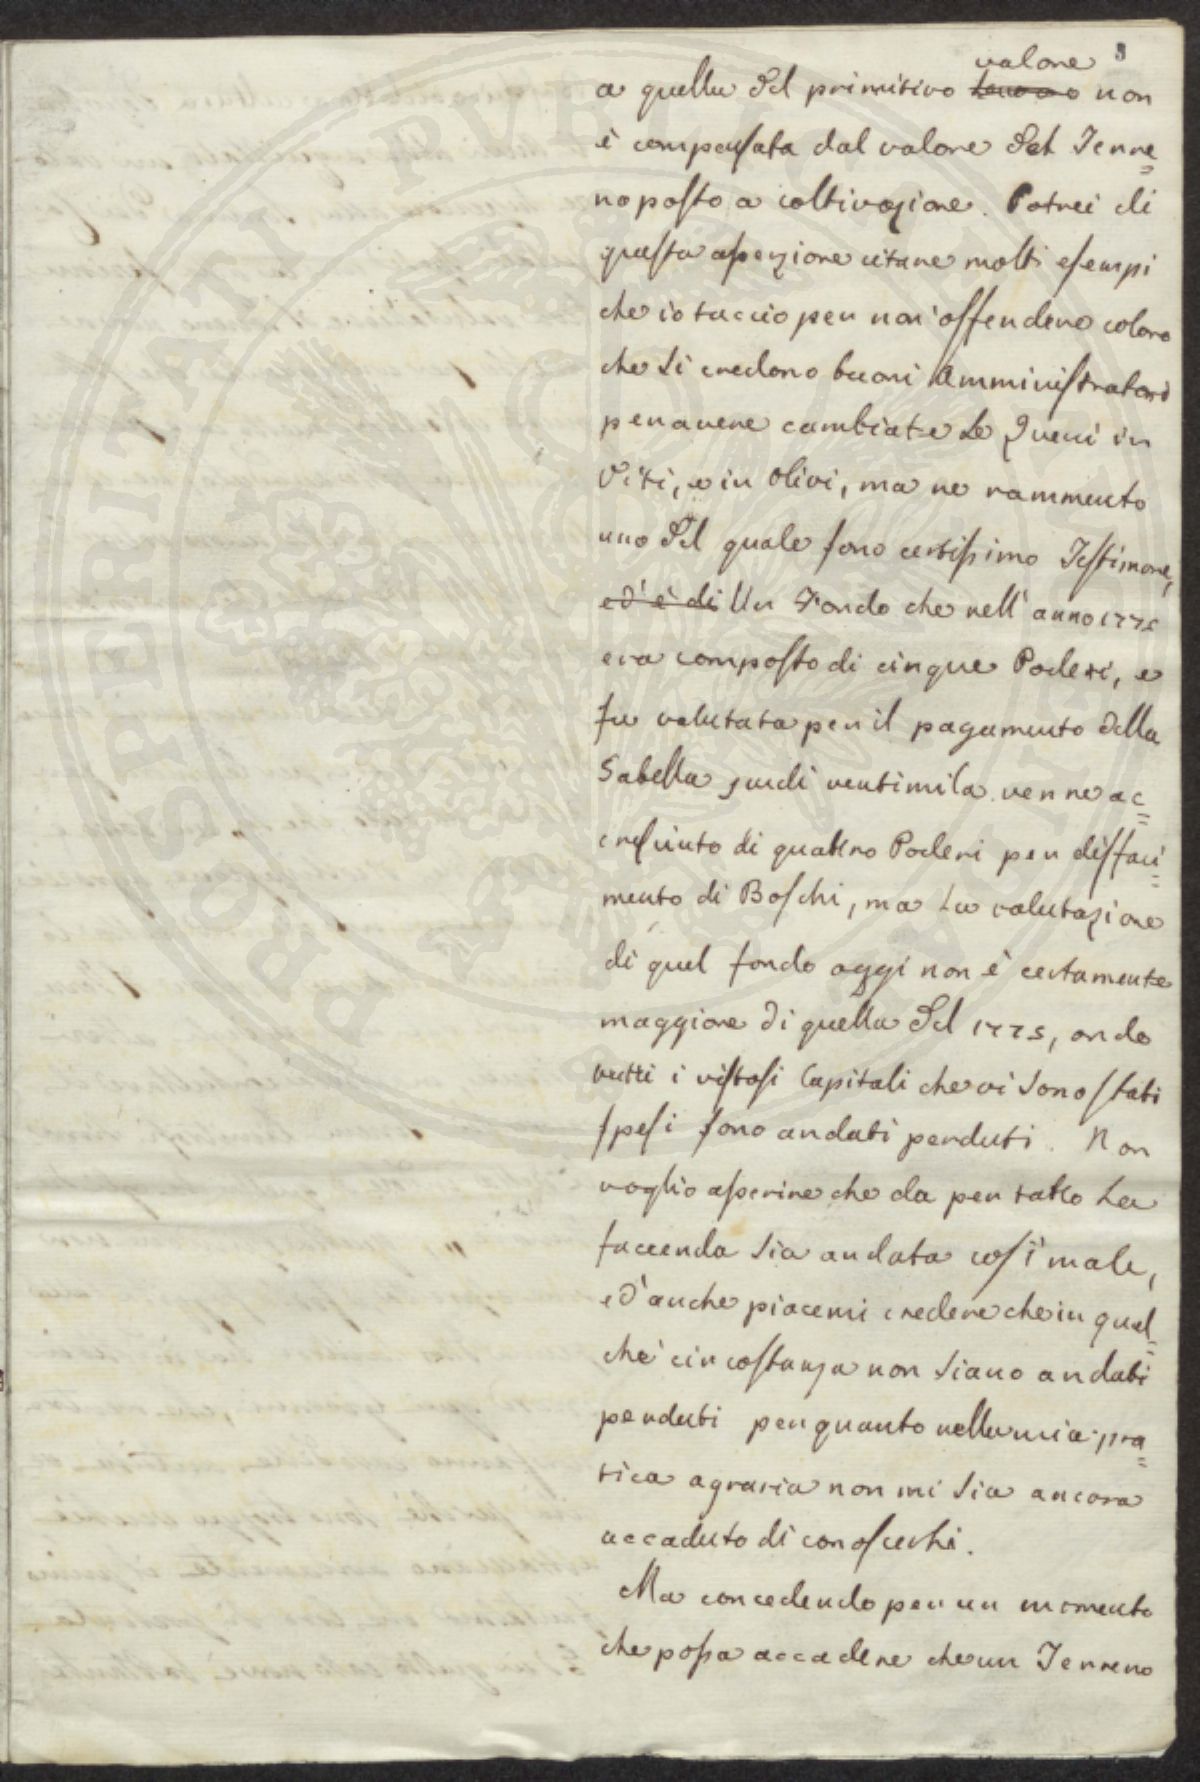 3
valore
a quella del primitivo terreno non
è compensata dal valore del Terre=
no posto a coltivazione. Potrei di
questa asserzione citare molti esempi
che io taccio per non offendere coloro
che si credono buoni Amministratori
per avere cambiate le Querci in
Viti, e in Olivi, ma ne rammento
uno del quale sono certissimo Testimone,
ed è di Un Fondo che nell'anno 1775
era composto di cinque Poderi, e
fu valutata per il pagamento della
Gabella scudi ventimila venne ac=
cresciuto di quattro Poderi per disfaci=
mento di Boschi, ma la valutazione
di quel fondo oggi non è certamente
maggiore di quella del 1775, onde
tutti i vistosi Capitali che vi sono stati
spesi sono andati perduti. Non
voglio asserire che da per tutto la
faccenda sia andata così male,
ed anche piacemi credere che in qual=
che circostanza non siano andati
perduti per quanto nella mia pra=
tica agraria non mi sia ancora
accaduto di conoscerhi.
Ma concedendo per un momento
che possa accadere che un Terreno
PROSPERITATI PUBLICAE AUGENDAE